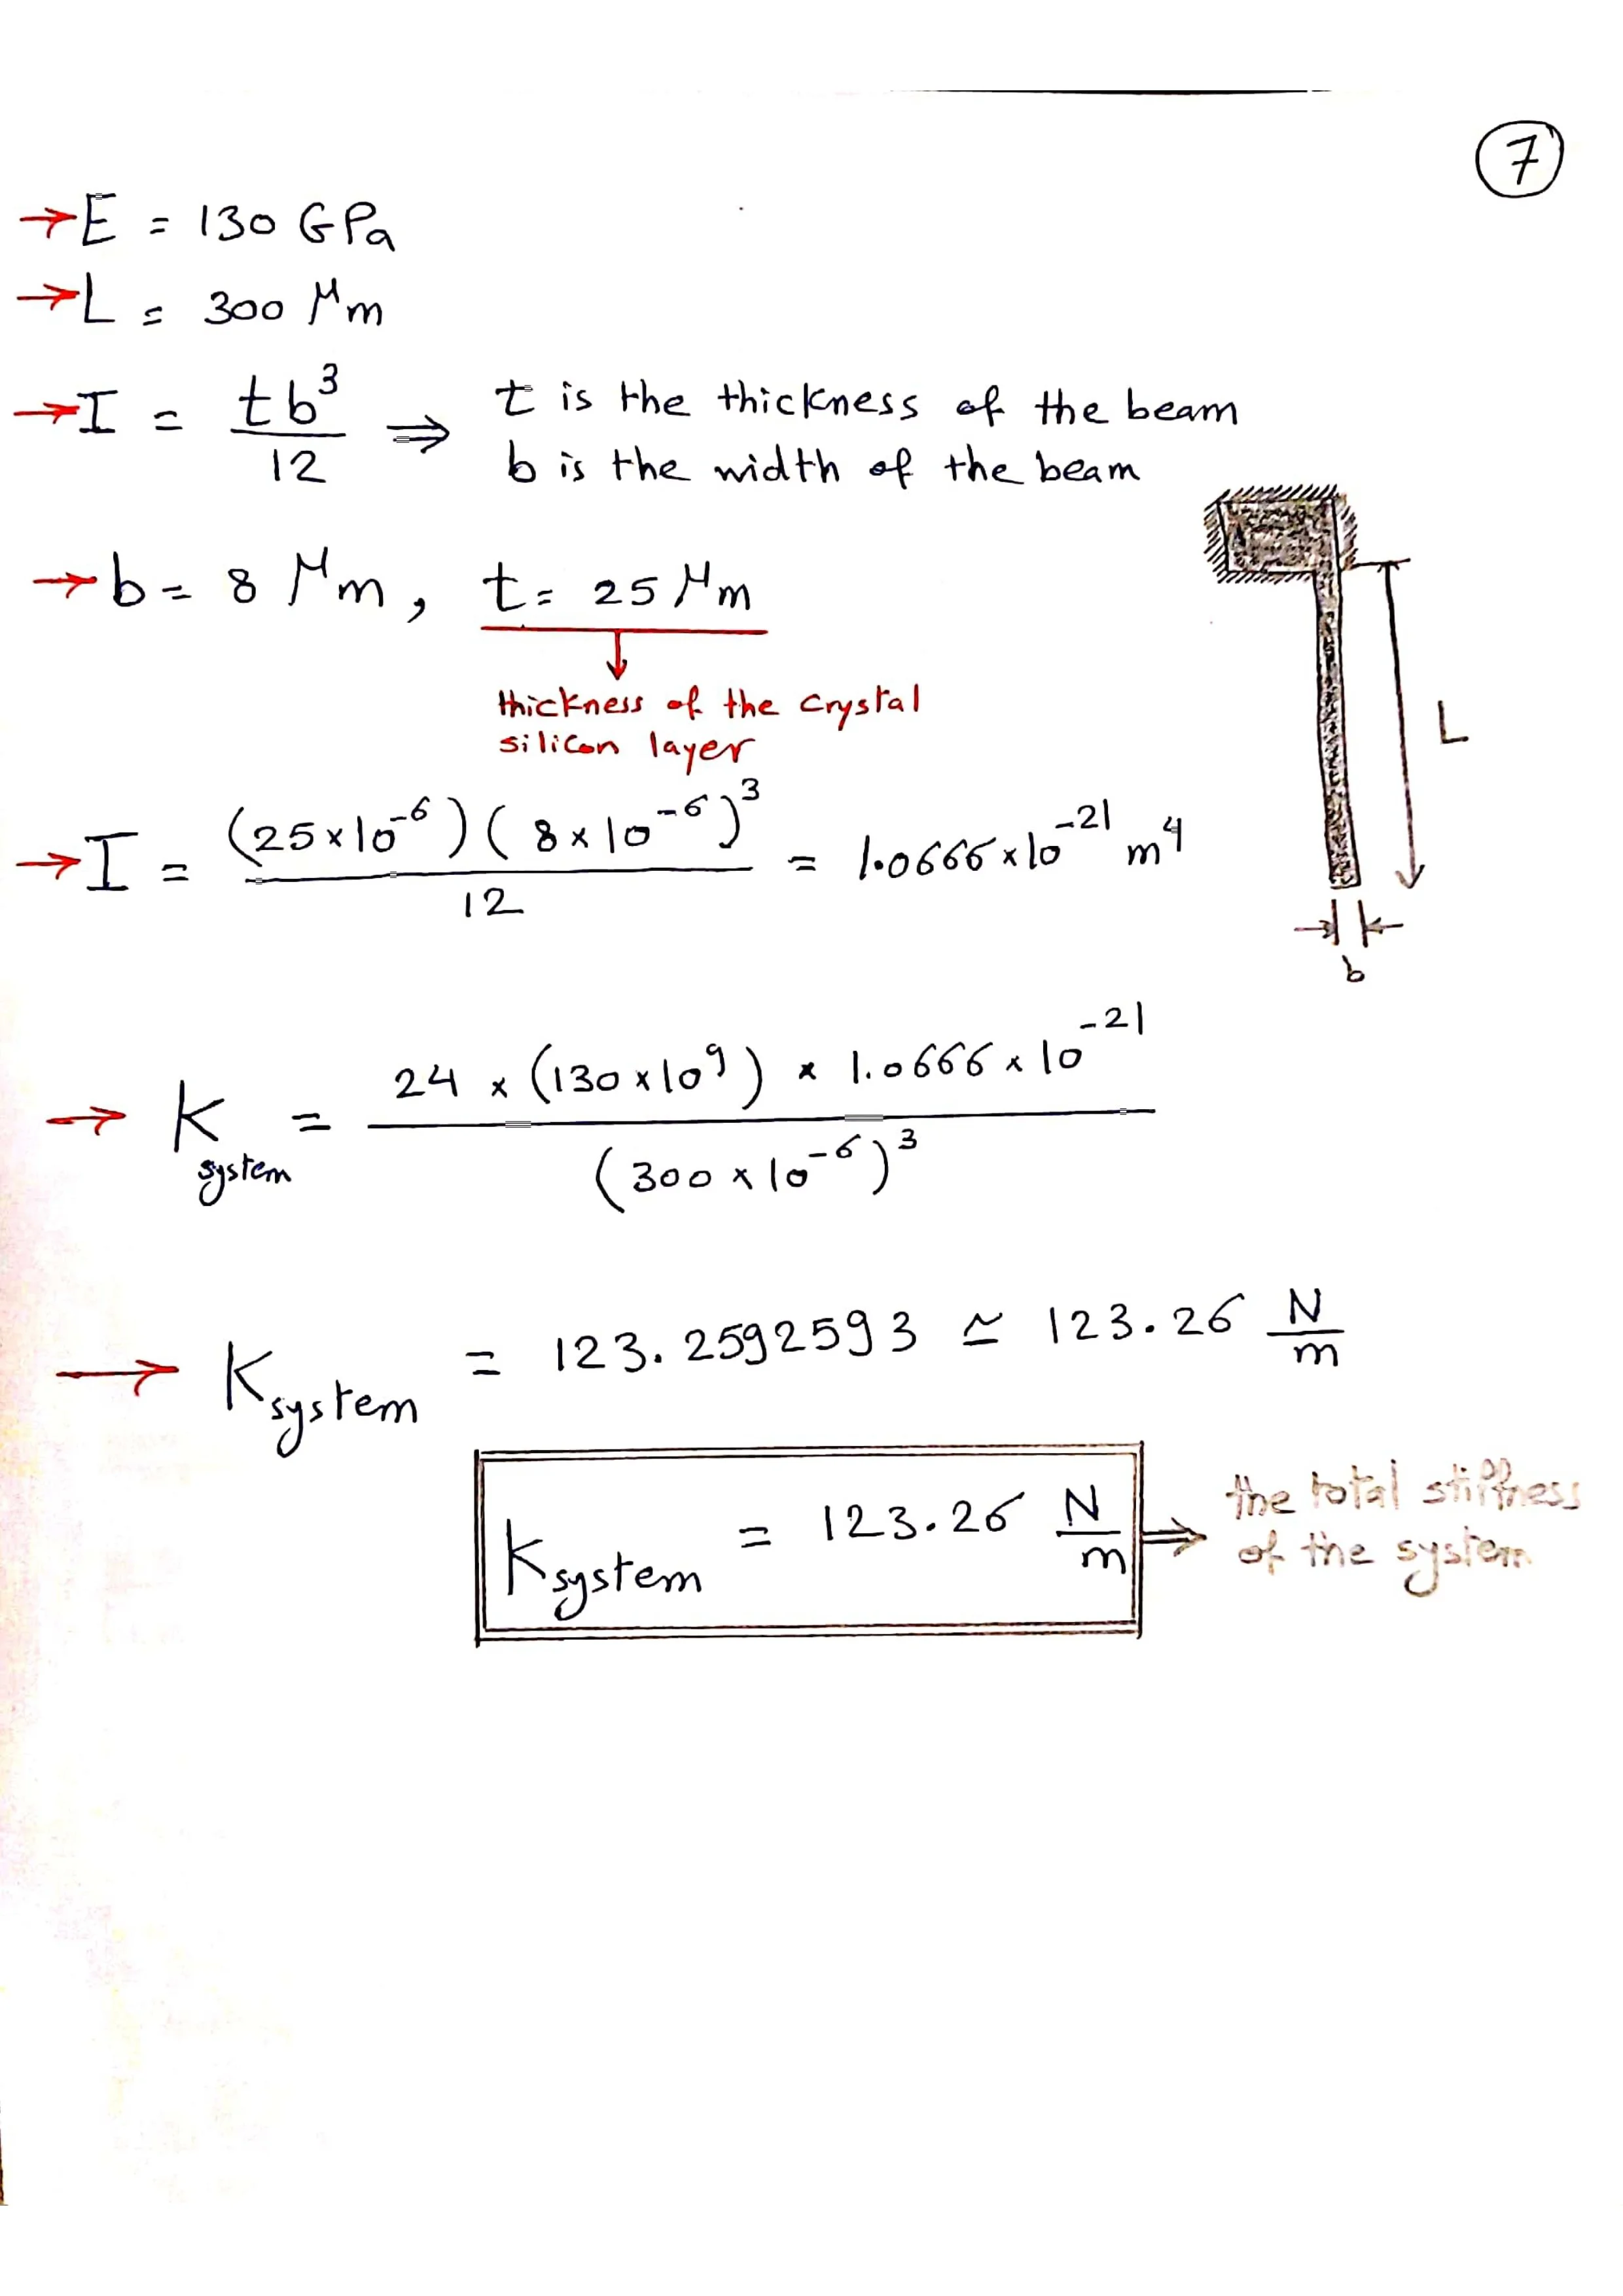 7
→ E = 130 GPa
→ L = 300 μm
→ I = tb³/12 ⇒ t is the thickness of the beam
b is the width of the beam
→ b = 8 μm, t = 25 μm
thickness of the crystal
silicon layer
L
→ I = (25×10⁻⁶)(8×10⁻⁶)³/12 = 1.0666×10⁻²¹ m⁴
b
→ K system = 24 × (130×10⁹) × 1.0666×10⁻²¹/(300×10⁻⁶)³
→ Ksystem = 123.2592593 ≃ 123.26 N/m
Ksystem = 123.26 N/m ⇒ the total stiffness
of the system